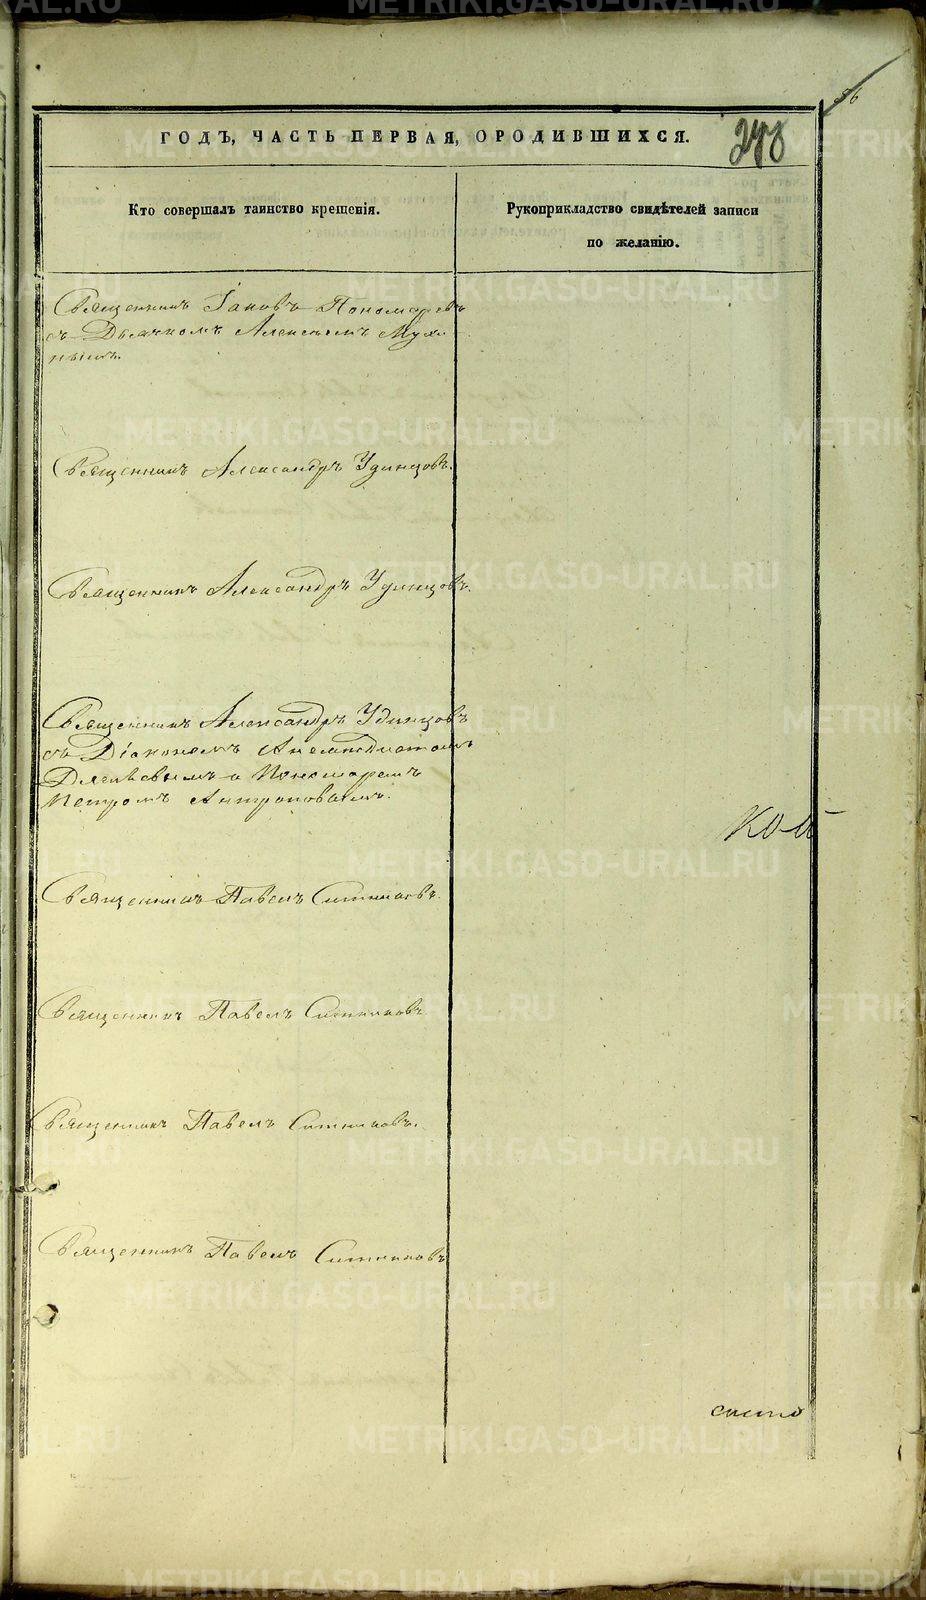 56
ГОДЪ, ЧАСТЬ ПЕРВАЯ, О РОДИВШИХСЯ.
Кто совершалъ таинство крещенія.
Рукоприкладство свидѣтелей записи
по желанію.
Священникъ Іаковъ Пономаревъ
съ Дьячкомъ Алексѣемъ Мухи
нымъ.
Священникъ Александръ Удинцовъ.
Священникъ Александръ Удинцовъ.
Священникъ Александръ Удинцовъ
съ Діакономъ
и Пономаремъ
Петромъ Антроповымъ.
Священникъ Павелъ Ситниковъ.
Священникъ Павелъ Ситниковъ
Священникъ Павелъ Ситниковъ.
Священникъ Павелъ Ситниковъ
METRIKI.GASO-URAL.RU